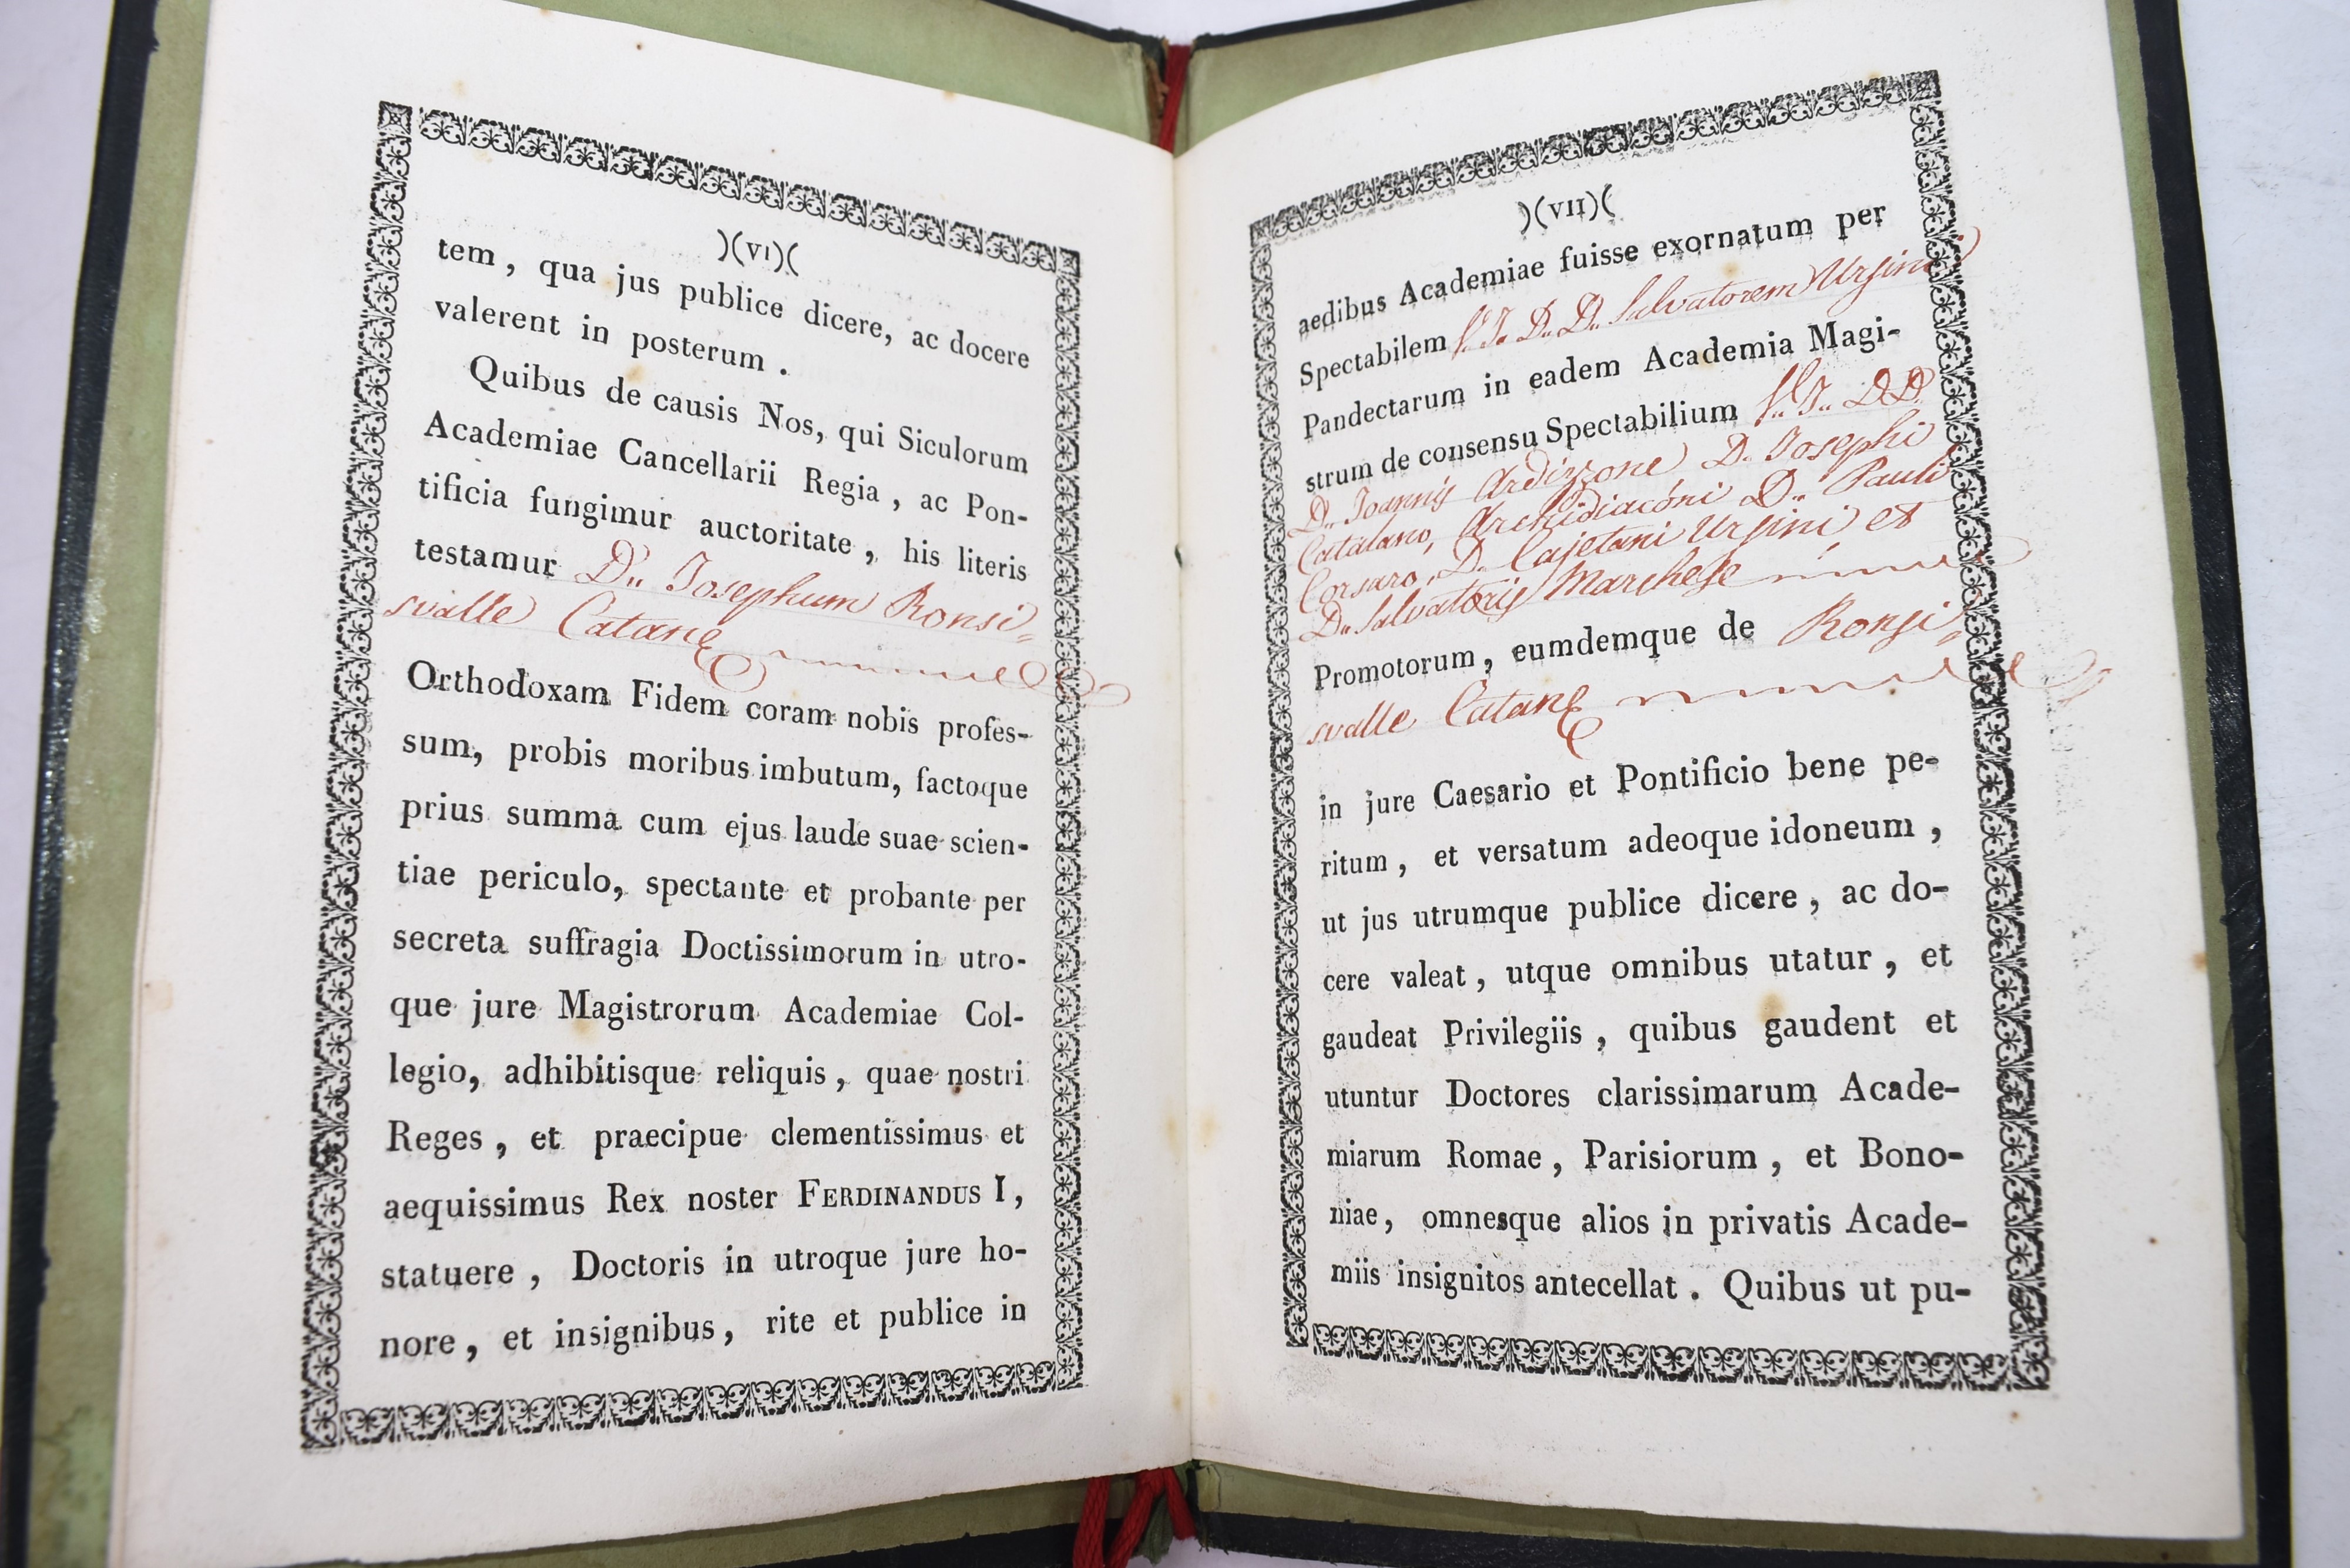 )(VI)(
tem, qua jus publice dicere, ac docere
valerent in posterum .
Quibus de causis Nos, qui Siculorum
Academiae Cancellarii Regia , ac Pon-
tificia fungimur auctoritate , his literis
testamur D.. Josephum Ronsi=
svalle Catanę
Orthodoxam Fidem coram nobis profes-
sum, probis moribus imbutum, factoque
prius summa cum ejus laude suae scien-
tiae periculo, spectante et probante per
secreta suffragia Doctissimorum in utro-
que jure Magistrorum Academiae Col-
legio, adhibitisque reliquis , quae nostri
Reges , et praecipue clementissimus et
aequissimus Rex noster FERDINANDUS I ,
statuere , Doctoris in utroque jure ho-
nore , et insignibus , rite et publice in
)(VII)(
aedibus Academiae fuisse exornatum per
Spectabilem D.. D.. Salvatorem Ursini
Pandectarum in eadem Academia Magi-
strum de consensu Spectabilium D D
D.. Joannis Ardizzone D. Josephi
Catalano, Archidiaconi D.. Pauli
Corsaro, D. Cajetani Ursini et
D.. Salvatoris Marchese
Promotorum , eumdemque de Ronsi=
svalle Catanę
in jure Caesario et Pontificio bene pe-
ritum , et versatum adeoque idoneum ,
ut jus utrumque publice dicere , ac do-
cere valeat , utque omnibus utatur , et
gaudeat Privilegiis , quibus gaudent et
utuntur Doctores clarissimarum Acade-
miarum Romae , Parisiorum , et Bono-
niae , omnesque alios in privatis Acade-
miis insignitos antecellat . Quibus ut pu-